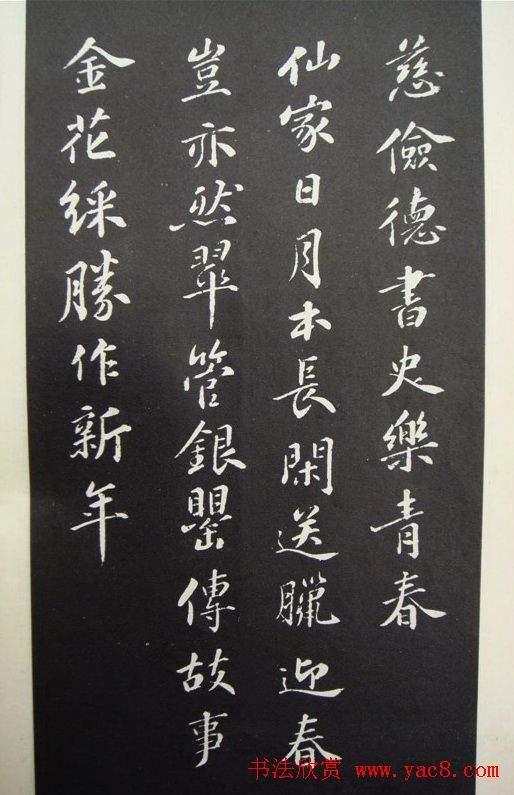 慈儉德書史樂青春
仙家日月本長閑送臘迎春
豈亦然翠管銀罌傳故事
金花綵勝作新年
书法欣赏 www.yac8.com